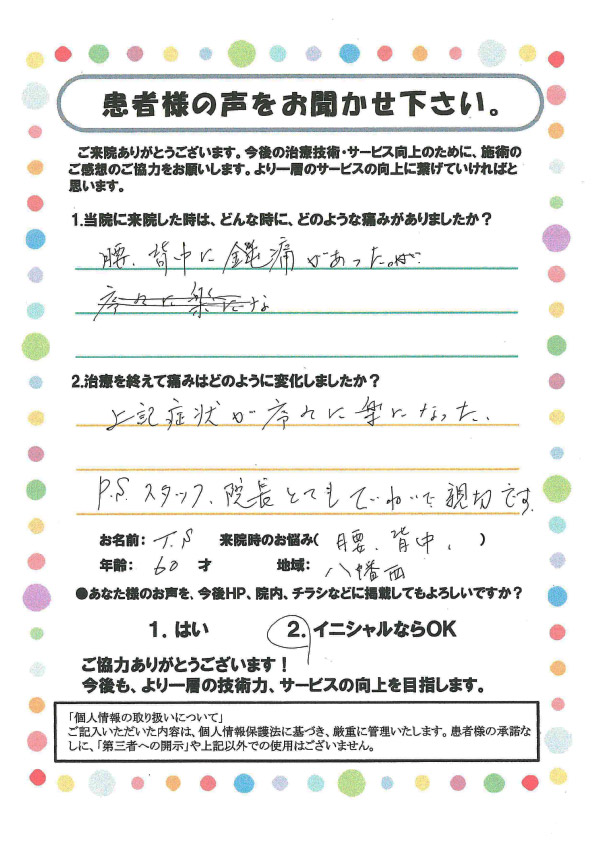 患者様の声をお聞かせ下さい。
ご来院ありがとうございます。今後の治療技術・サービス向上のために、施術の
ご感想のご協力をお願いします。より一層のサービスの向上に繋げていければと
思います。
1.当院に来院した時は、どんな時に、どのような痛みがありましたか？
腰、背中に鈍痛があった。
序々に楽にな
2.治療を終えて痛みはどのように変化しましたか？
上記症状が序々に楽になった。
P.S. スタッフ、院長とてもていねいで親切です。
お名前： T.S 来院時のお悩み（ 腰、背中、 ）
年齢： 60 才 地域： 八幡西
●あなた様のお声を、今後HP、院内、チラシなどに掲載してもよろしいですか？
1. はい 2. イニシャルならOK
ご協力ありがとうございます！
今後も、より一層の技術力、サービスの向上を目指します。
「個人情報の取り扱いについて」
ご記入いただいた内容は、個人情報保護法に基づき、厳重に管理いたします。患者様の承諾な
しに、「第三者への開示」や上記以外での使用はございません。